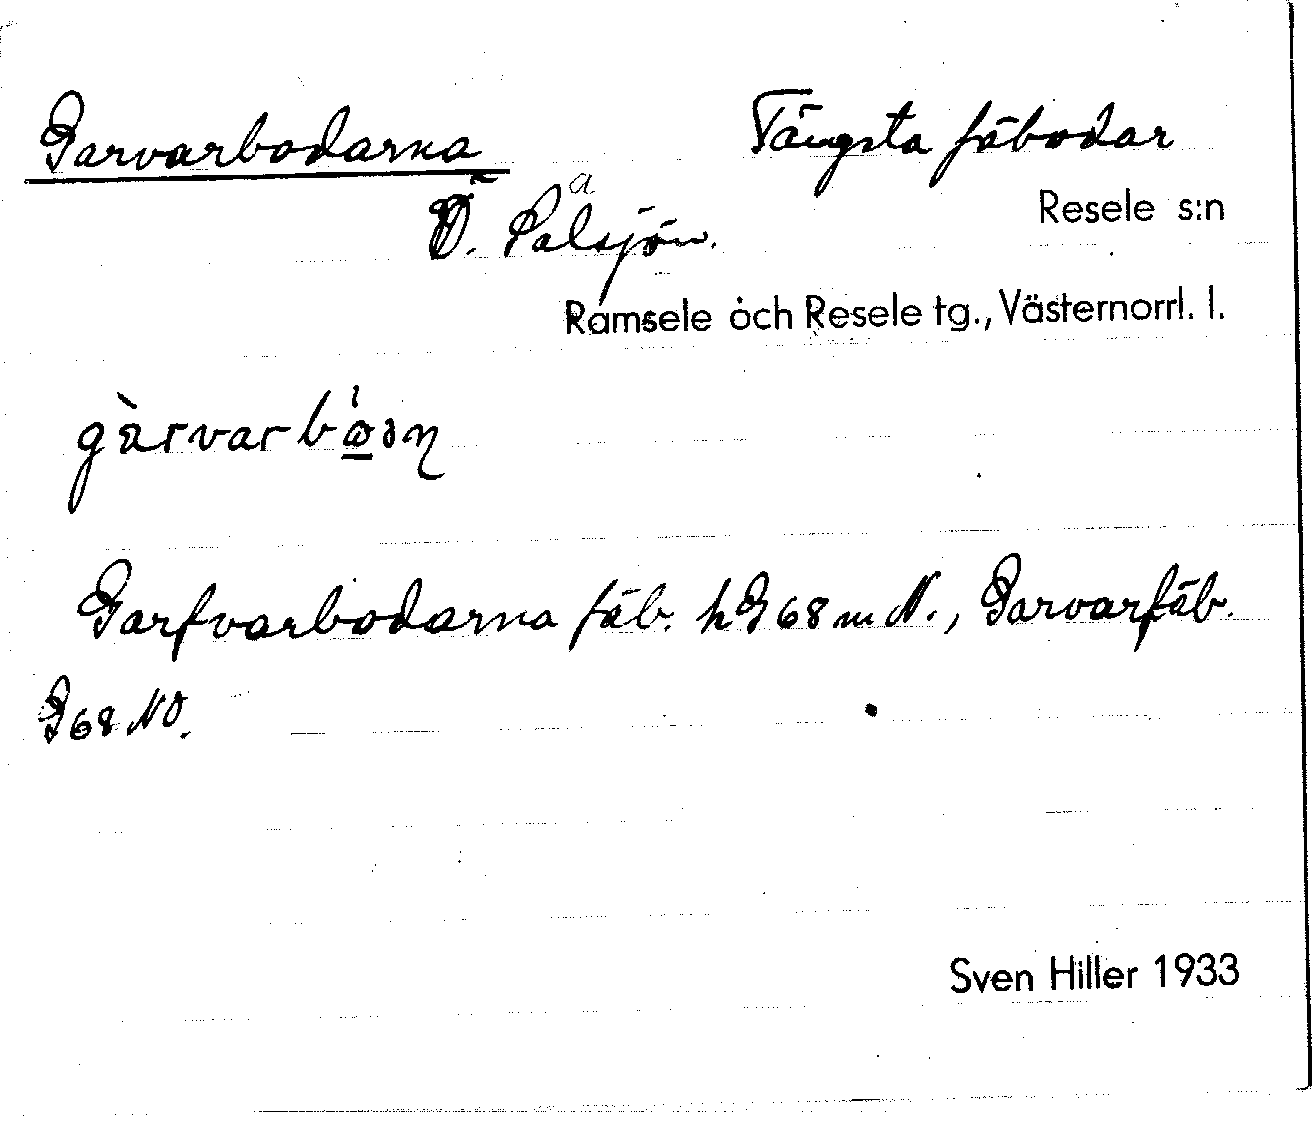 Garvarbodarna Tängsta fäbodar
Ö. Pålsjön. Resele s:n
Ramsele och Resele tg., Västernorrl. l.
Garfvarbodarna fäb. h G 68 m N., Garvarfäb.
G 68 NO.
Sven Hiller 1933